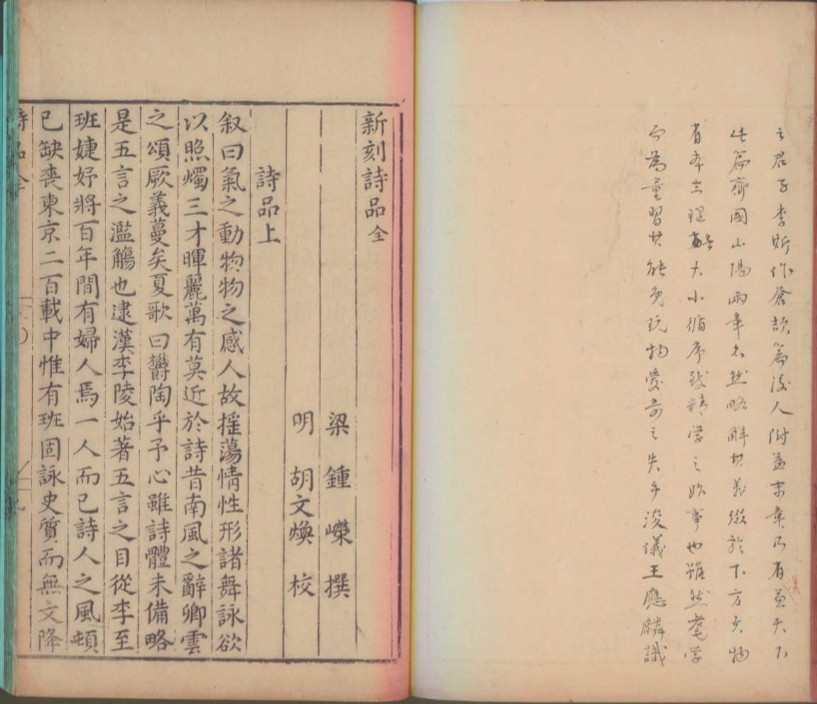 之君子李斯作蒼頡篇後人附益末章乃有益天下
此篇齊國山陽兩章不然略解其義綴於下方多物
省本立理大小循序致精學之始事也雖然耄學
而為童習其能免玩物愛奇之失乎浚儀王應麟識
新刻詩品全
梁 鍾嶸 撰
明 胡文煥 校
詩品上
叙曰氣之動物物之感人故搖蕩情性形諸舞詠欲
以照燭三才暉麗萬有莫近於詩昔南風之辭卿雲
之頌厥義蔓矣夏歌曰鬱陶乎予心雖詩體未備略
是五言之濫觴也逮漢李陵始著五言之目從李至
班婕妤將百年間有婦人焉一人而已詩人之風頓
已缺喪東京二百載中惟有班固詠史質而無文降
詩品全